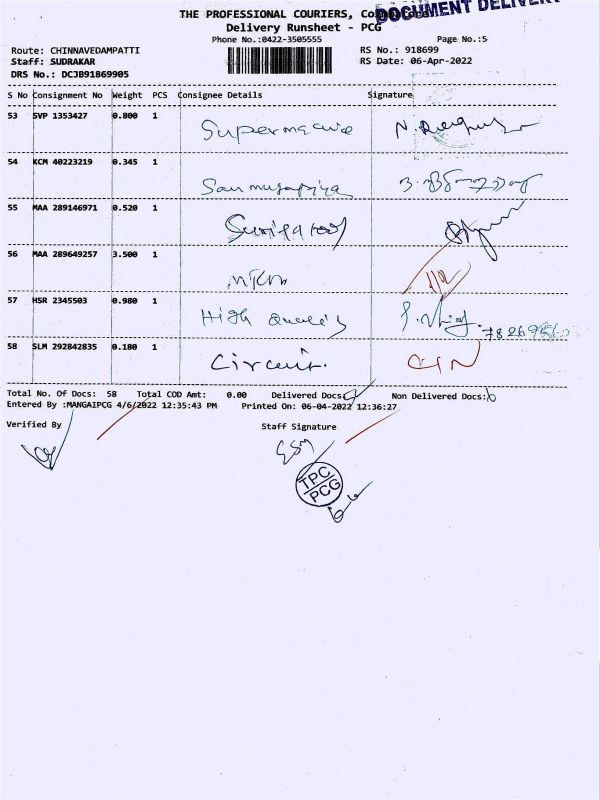 THE PROFESSIONAL COURIERS, Coimbatore
DOCUMENT DELIVERY
Delivery Runsheet - PCG
Phone No.:0422-3505555 Page No.:5
Route: CHINNAVEDAMPATTI RS No.: 918699
Staff: SUDRAKAR RS Date: 06-Apr-2022
DRS No.: DCJB91869905
S No Consignment No Weight PCS Consignee Details Signature
53 SVP 1353427 0.800 1
54 KCM 40223219 0.345 1
55 MAA 289146971 0.520 1
56 MAA 289649257 3.500 1
57 HSR 2345503 0.980 1
High
58 SLM 292842835 0.180 1
Circuit.
Total No. Of Docs: 58 Total COD Amt: 0.00 Delivered Docs: Non Delivered Docs:
Entered By :MANGAIPCG 4/6/2022 12:35:43 PM Printed On: 06-04-2022 12:36:27
Verified By Staff Signature
TPC
PCG